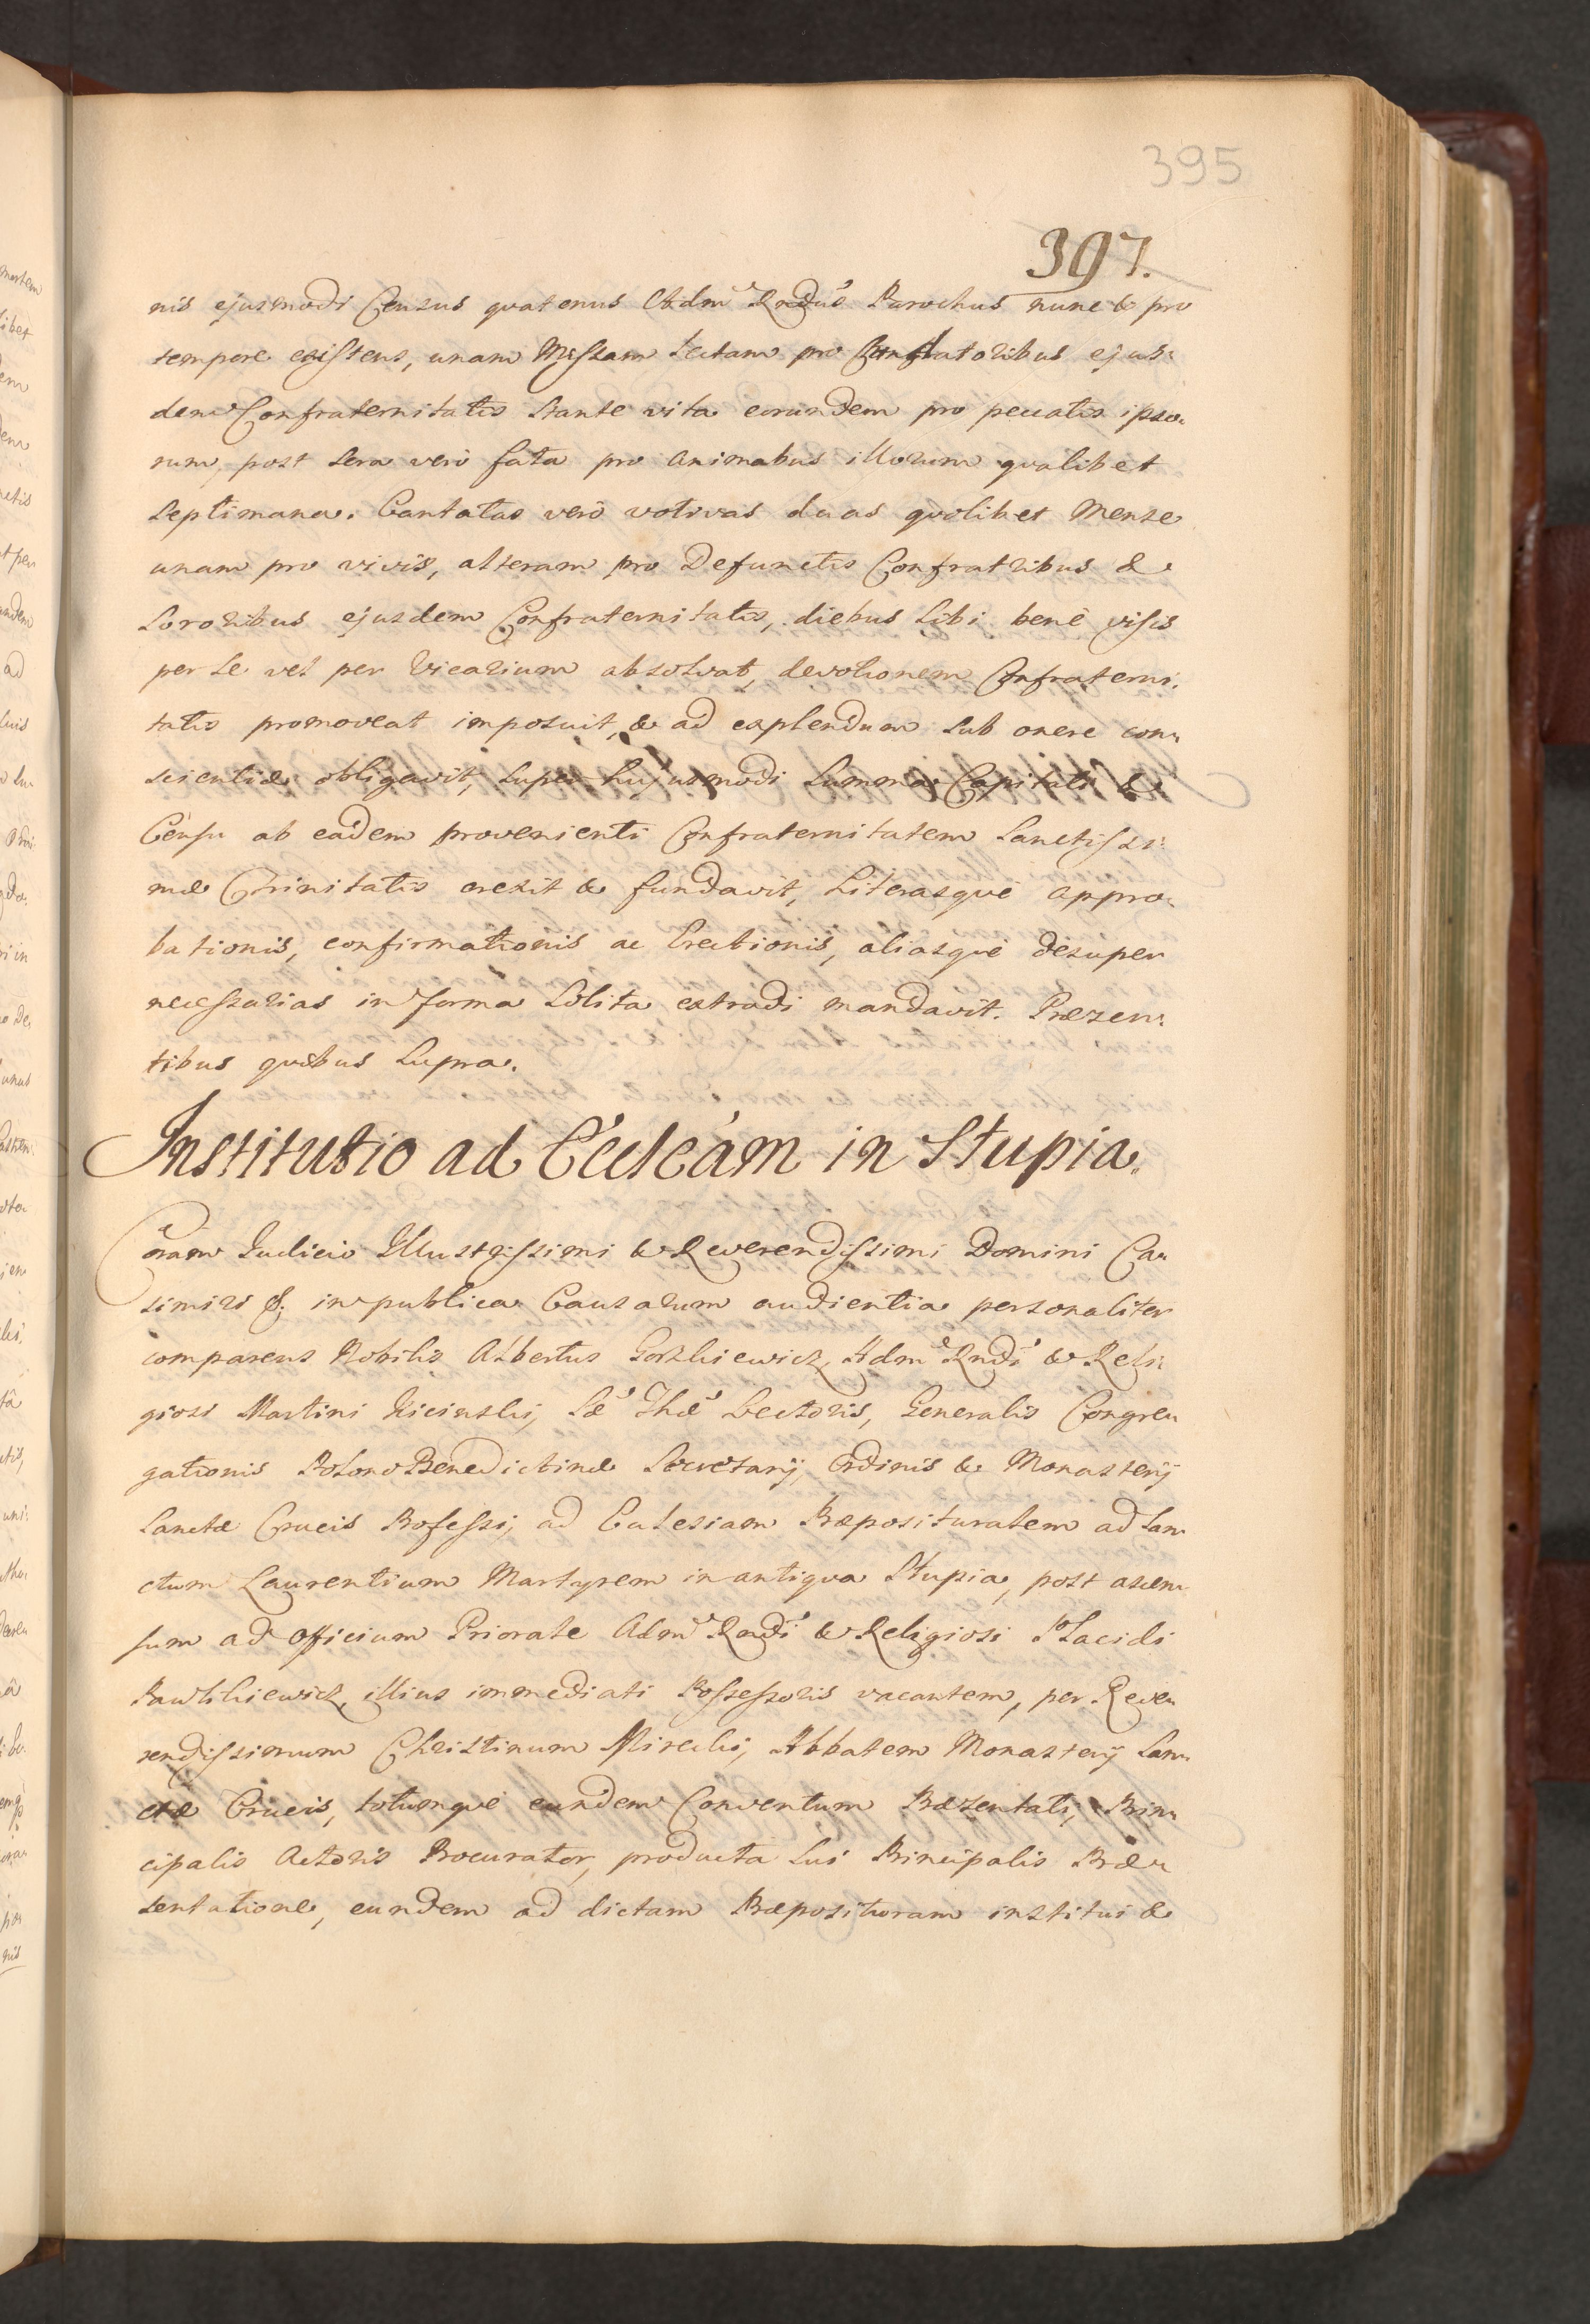 395
397.
nis ejusmodi Census quatenus Adm Rndus Parochus nunc & pro
tempore existens, unam Missam lectam pro Fundatoribus ejus-
dem Confraternitatis stante vita eorundem pro peccatis ipso-
rum, post sera verò fata pro animabus illorum qualibet
Septimana. Cantatas verò votivas duas quolibet Mense
unam pro vivis, alteram pro Defunctis Confratribus &
Sororibus ejusdem Confraternitatis, diebus sibi benè visis
per se vel per Vicarium absolvat, devotionem Confraterni-
tatis promoveat imposuit, & ad explendum sub onere con-
scientiæ obligavit, super hujusmodi Summa Capitali &
Censu ab eâdem provenienti Confraternitatem Sanctissi-
mæ Trinitatis erexit & fundavit, Literasquè appro-
bationis, confirmationis ac Erectionis, aliasquè desuper
necessarias in forma solita extradi mandavit. Præsen-
tibus quibus supra.
Institutio ad Eccleam in Słupia.
Coram Judicio Illustrissimi & Reverendissimi Domini Ca-
simiri &. in publica Causarum audientia personaliter
comparens Nobilis Albertus Gorzkiewicz, Adm Rndi & Reli-
giosi Martini Kicinski, Sæ Thæ Lectoris, Generalis Congre-
gationis Polono Benedictinæ Secretarij, Ordinis & Monasterij
Sanctæ Crucis Professi, ad Eccelesiam Præposituralem ad San-
ctum Laurentium Martyrem in antiqua Słupia, post ascen-
sum ad officium Priorale Adm Rndi & Religiosi Placidi
Pawlikiewicz, illius immediati Possessoris vacantem, per Reve-
rendissimum Christinum Mirecki, Abbatem Monasterij San-
ctæ Crucis, totumquè eundem Conventum Præsentati, Prin-
cipalis Actoris Procurator, producta sui Principalis Præ-
sentatione, eundem ad dictam Præposituram institui &